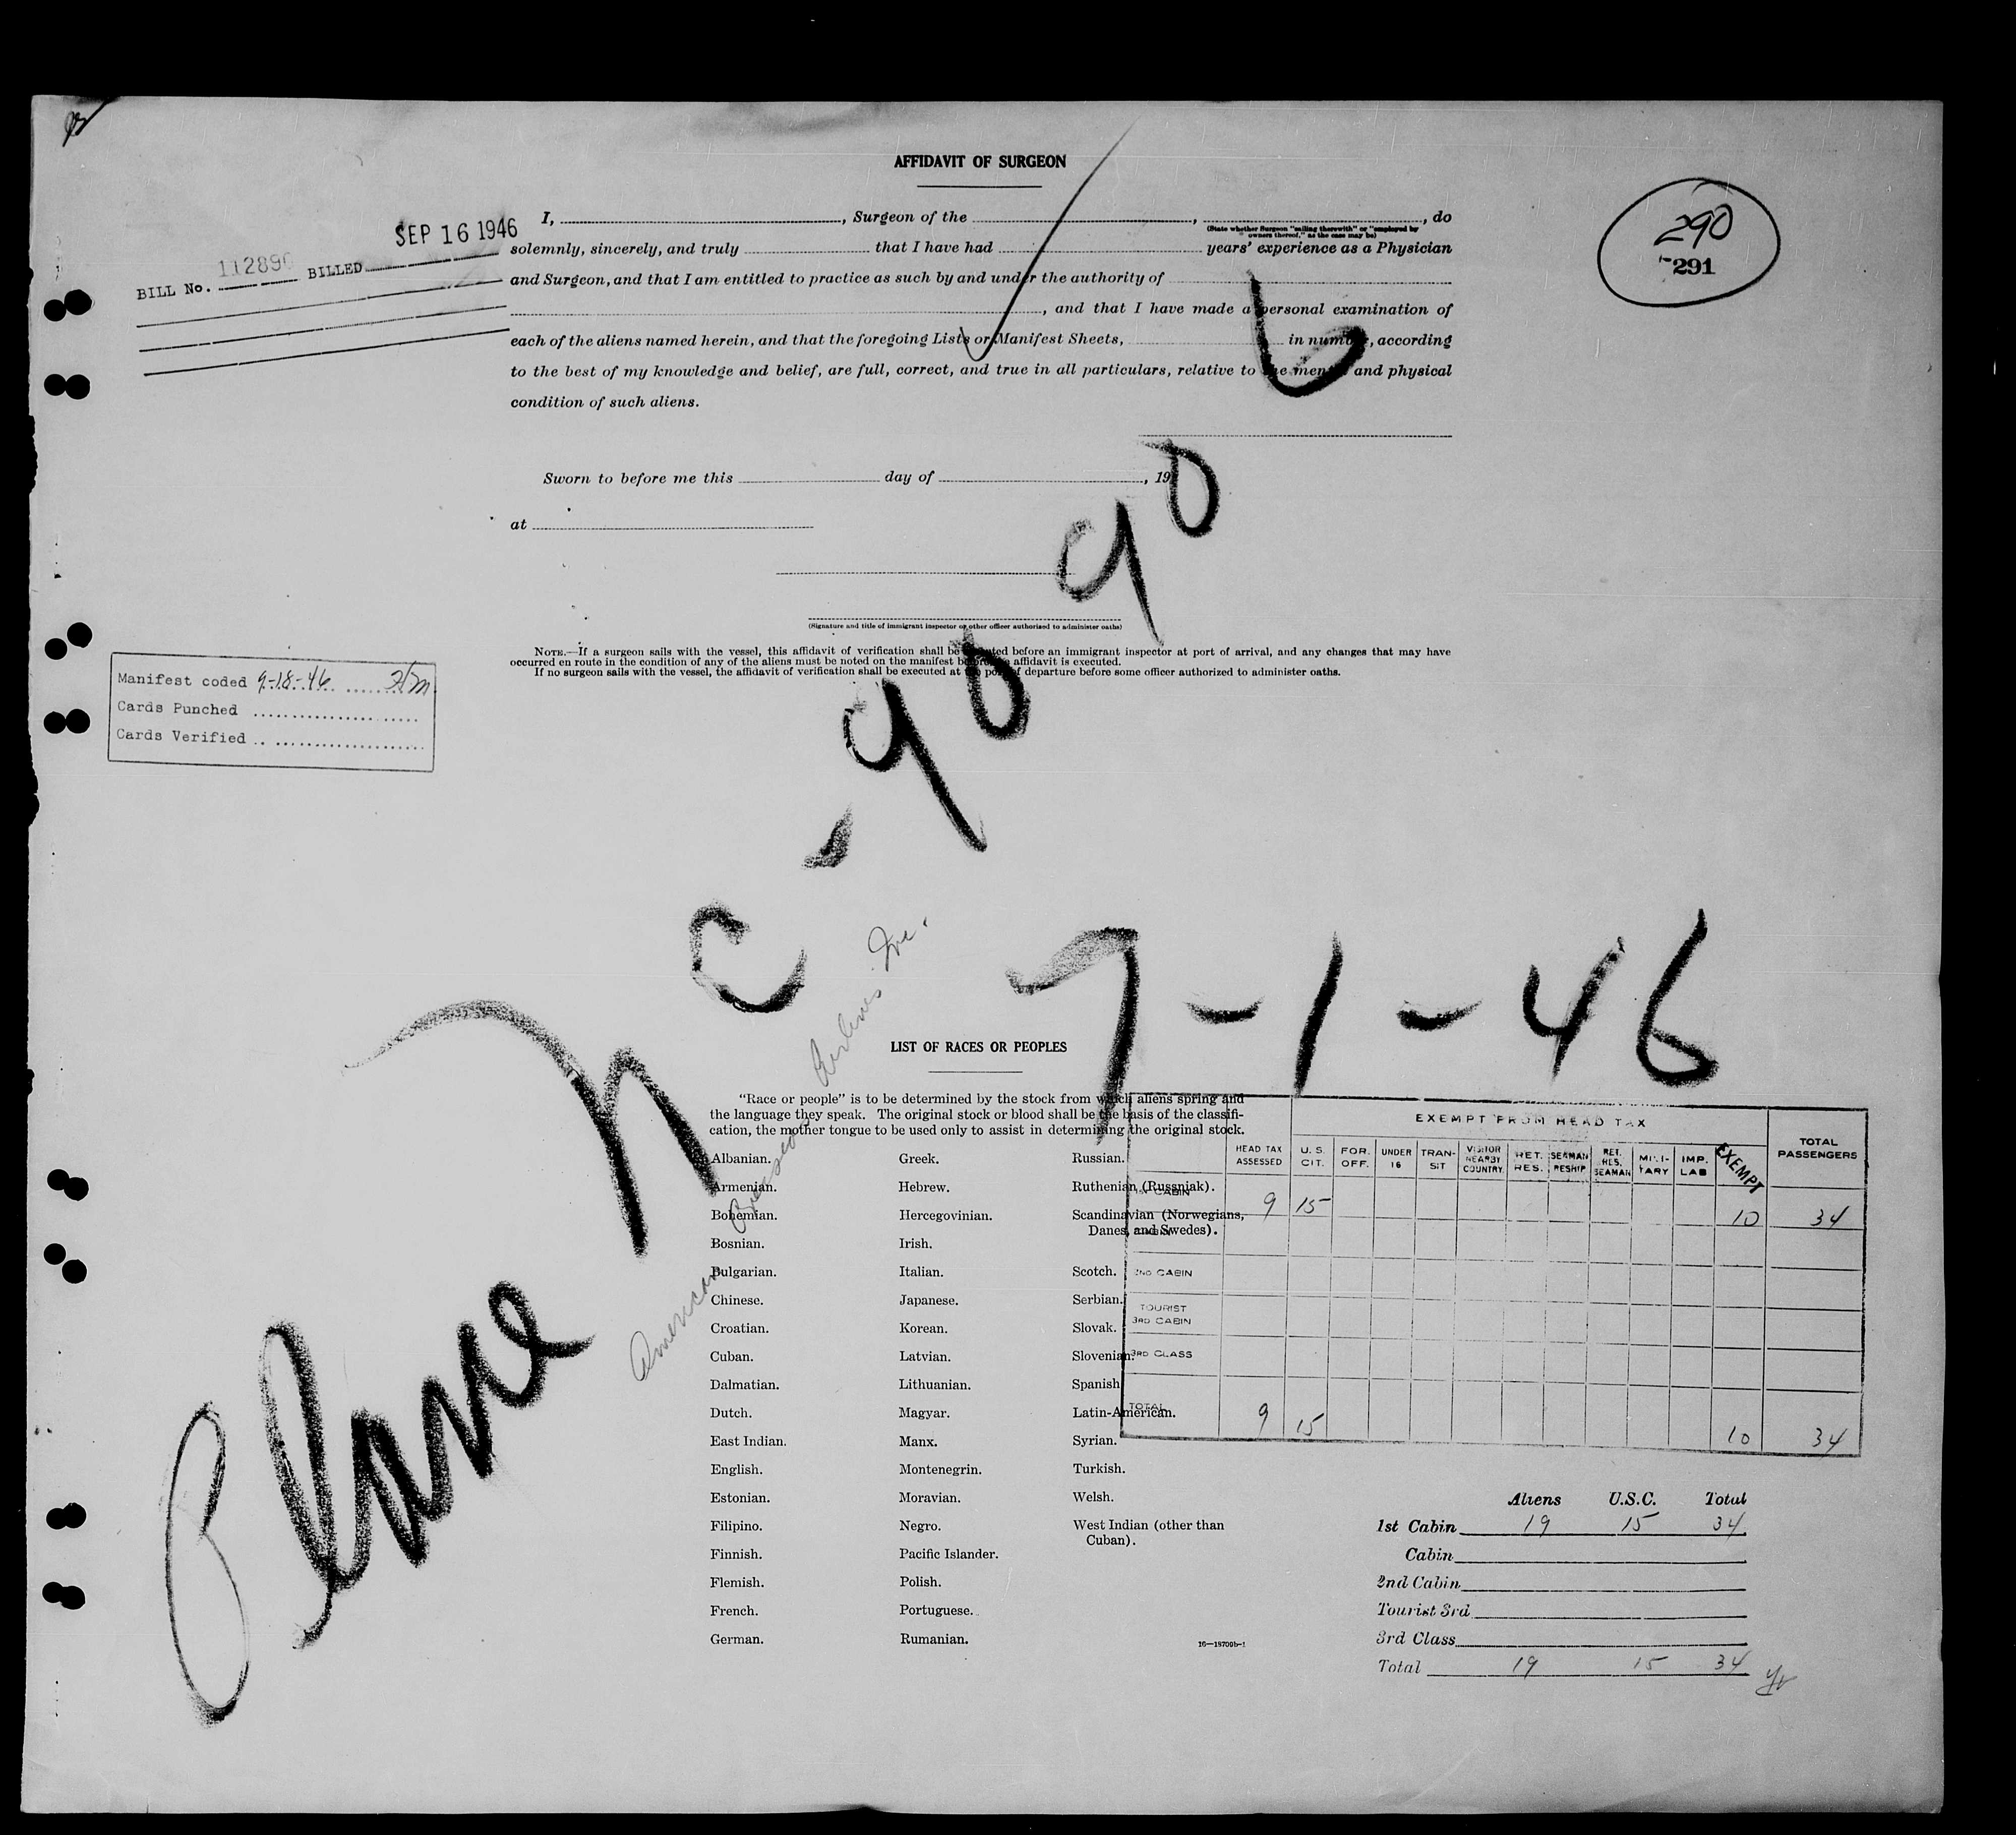 AFFIDAVIT OF SURGEON
I, , Surgeon of the , , do
(State whether Surgeon "sailing therewith" or "employed by owners thereof," as the case may be)
solemnly, sincerely, and truly that I have had years' experience as a Physician
and Surgeon, and that I am entitled to practice as such by and under the authority of
, and that I have made a personal examination of
each of the aliens named herein, and that the foregoing Lists or Manifest Sheets, in number, according
to the best of my knowledge and belief, are full, correct, and true in all particulars, relative to the mental and physical
condition of such aliens.
SEP 16 1946
BILL No. 112890 BILLED
290
-291
Sworn to before me this day of , 19
at
(Signature and title of immigrant inspector or other officer authorized to administer oaths)
NOTE.—If a surgeon sails with the vessel, this affidavit of verification shall be executed before an immigrant inspector at port of arrival, and any changes that may have
occurred en route in the condition of any of the aliens must be noted on the manifest before the affidavit is executed.
If no surgeon sails with the vessel, the affidavit of verification shall be executed at the port of departure before some officer authorized to administer oaths.
Manifest coded 9-18-46
Cards Punched
Cards Verified
Plane NC-90906
7-1-46
American Overseas Airlines Inc.
LIST OF RACES OR PEOPLES
"Race or people" is to be determined by the stock from which aliens spring and
the language they speak. The original stock or blood shall be the basis of the classifi-
cation, the mother tongue to be used only to assist in determining the original stock.
Albanian.
Armenian.
Bohemian.
Bosnian.
Bulgarian.
Chinese.
Croatian.
Cuban.
Dalmatian.
Dutch.
East Indian.
English.
Estonian.
Filipino.
Finnish.
Flemish.
French.
German.
Greek.
Hebrew.
Hercegovinian.
Irish.
Italian.
Japanese.
Korean.
Latvian.
Lithuanian.
Magyar.
Manx.
Montenegrin.
Moravian.
Negro.
Pacific Islander.
Polish.
Portuguese.
Rumanian.
Russian.
Ruthenian (Russniak).
Scandinavian (Norwegians,
Danes, and Swedes).
Scotch.
Serbian.
Slovak.
Slovenian.
Spanish
Latin-American.
Syrian.
Turkish.
Welsh.
West Indian (other than
Cuban).
16—18709b-1
EXEMPT FROM HEAD TAX
HEAD TAX ASSESSED U.S. CIT. FOR. OFF. UNDER 16 TRAN-SIT VISITOR NEARBY COUNTRY RET. RES. SEAMAN RESHIP RET. RES. SEAMAN MILI-TARY IMP. LAB EXEMPT TOTAL PASSENGERS
1ST CABIN 9 15 10 34
CABIN
2ND CABIN
TOURIST
3RD CABIN
3RD CLASS
TOTAL 9 15 10 34
Aliens U.S.C. Total
1st Cabin 19 15 34
Cabin
2nd Cabin
Tourist 3rd
3rd Class
Total 19 15 34